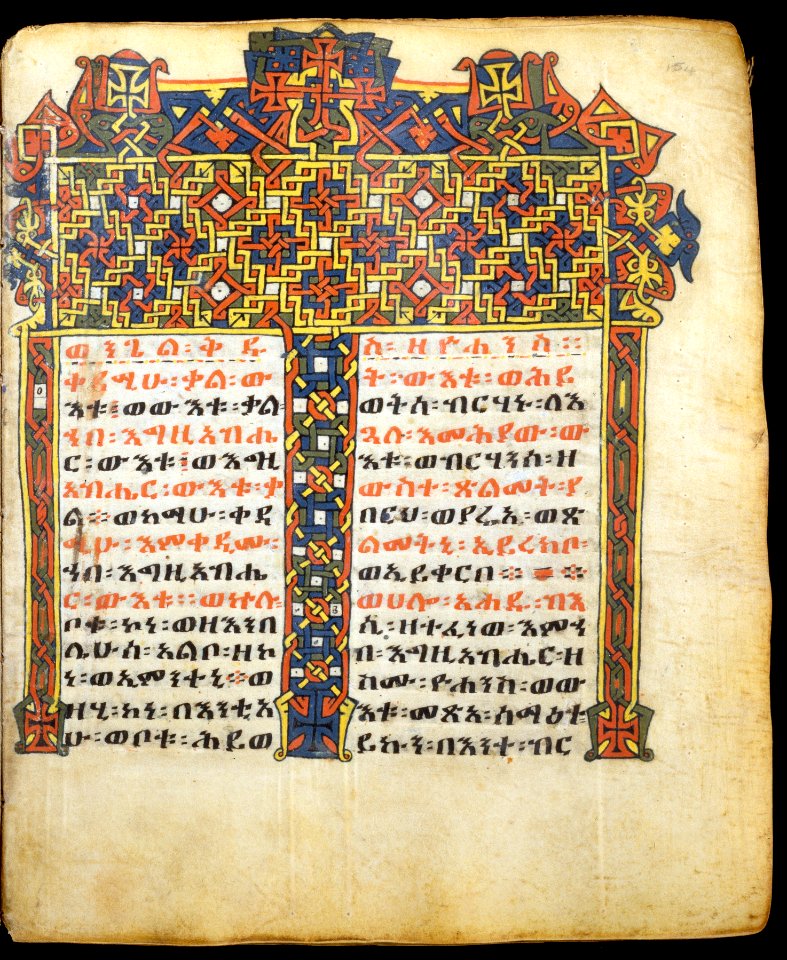 ወንጌል፡ቅዱ
ስ፡ዘዮሐንስ።
ቀዳሚሁ፡ቃል፡ው
እቱ፡ወውእቱ፡ቃል፡
ኀበ፡እግዚአብሔ
ር፡ውእቱ፡ወእግዚ
አብሔር፡ውእቱ፡ቃ
ል፡ወከማሁ፡ቀዳ
ሚሁ፡እምቀዲሙ፡
ኀበ፡እግዚአብሔ
ር፡ውእቱ፡ወኵሉ፡
ቦቱ፡ኮነ፡ወዘእንበ
ሌሁሰ፡አልቦ፡ዘኮ
ነ፡ወኢምንተኒ፡ወ
ዘሂ፡ኮነ፡በእንቲአ
ሁ፡ወቦቱ፡ሕይወ
ት፡ውእቱ፡ወሕይ
ወትሰ፡ብርሃኑ፡ለእ
ጓለ፡እመሕያው፡ው
እቱ፡ወብርሃንሰ፡ዘ
ውስተ፡ጽልመት፡ያ
በርህ፡ወያሬኢ፡ወጽ
ልመትኒ፡ኢይረክቦ
ወኢይቀርቦ
ወሀሎ፡አሐዱ፡ብእ
ሲ፡ዘተፈነወ፡እምኀ
በ፡እግዚአብሔር፡ዘ
ስሙ፡ዮሐንስ፡ወው
እቱ፡መጽአ፡ሰማዕተ፡
ይኩን፡በእንተ፡ብር